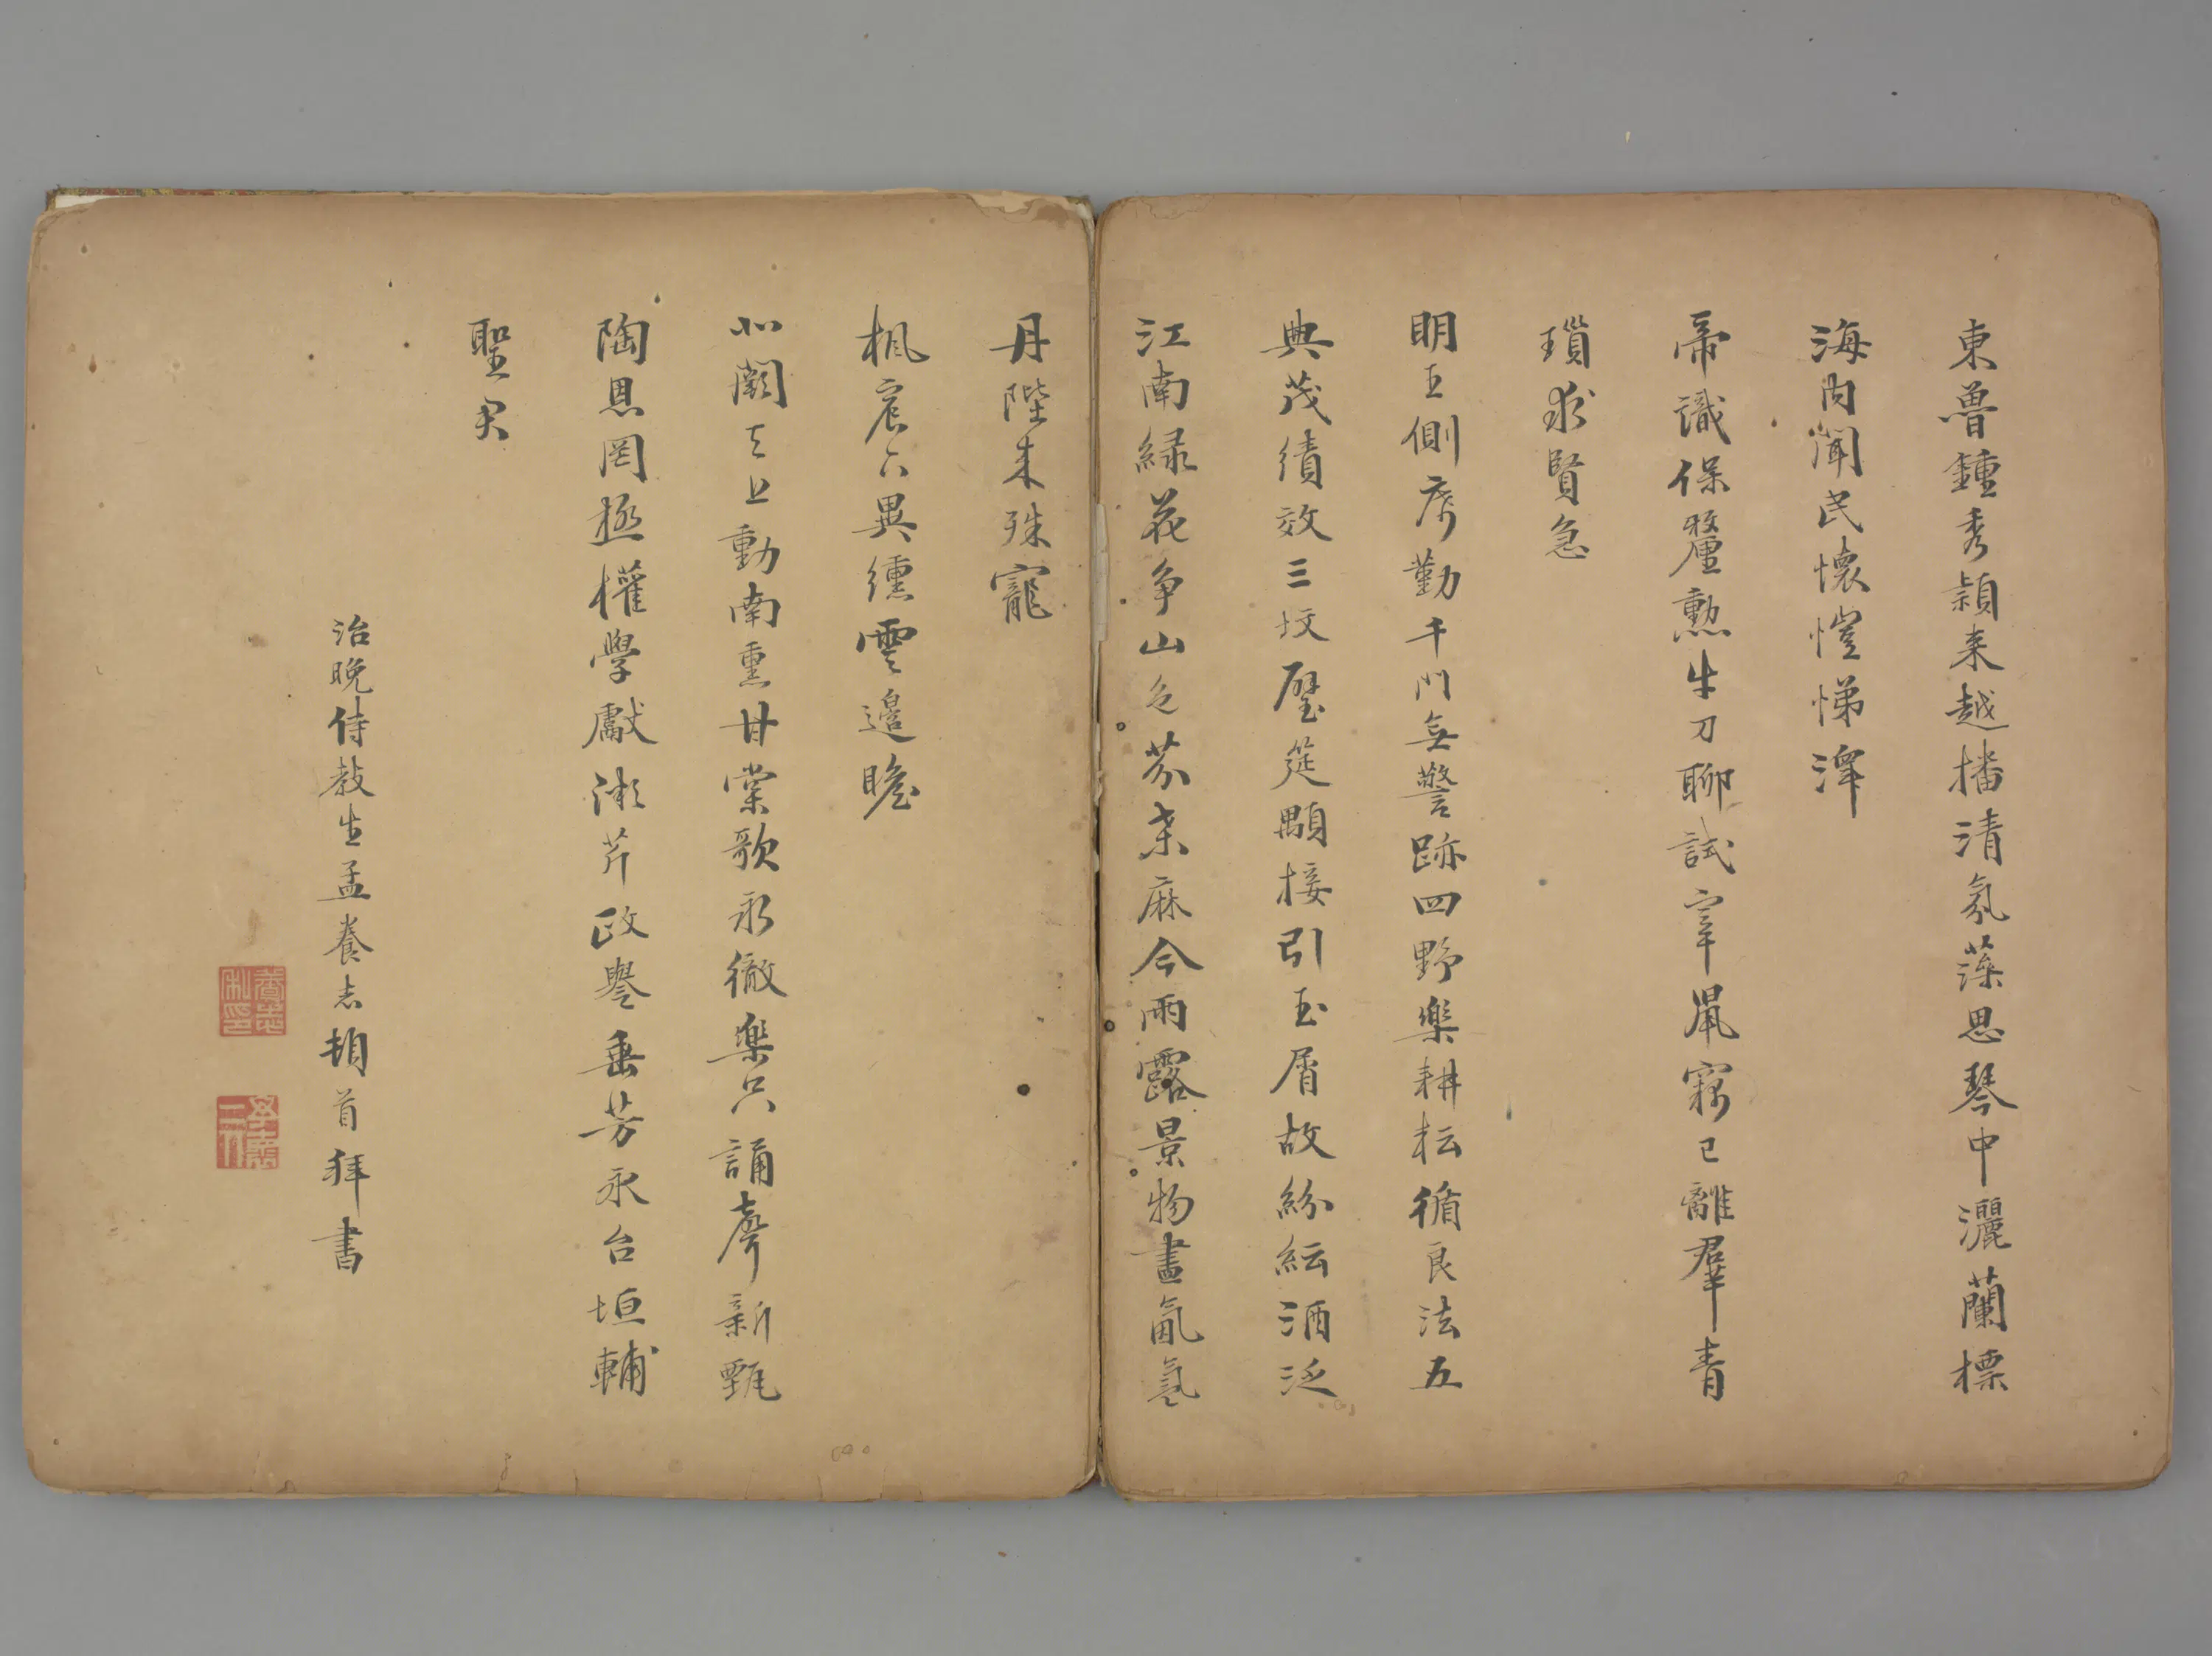 東魯鍾秀穎来越播清氛藻思琴中灑蘭標
海内聞民懷愷悌澤
帝識保釐勲牛刀聊試宰鳳竊已離羣青
瑣求賢急
明王側席勤千門無警跡四野樂耕耘循良法五
典茂績效三坟璧筵顒接引玉屑故紛紜酒泛
江南緑花争山色芬桑麻今雨露景物晝氤氲
丹陛来殊寵
楓宸六異纁雲邉瞻
北闕天上動南熏甘棠歌永徹樂只誦聲新甄
陶恩罔極權學獻漸芹政譽垂芳永台垣輔
聖君
治晚侍教生孟養志頓首拜書
養志私印